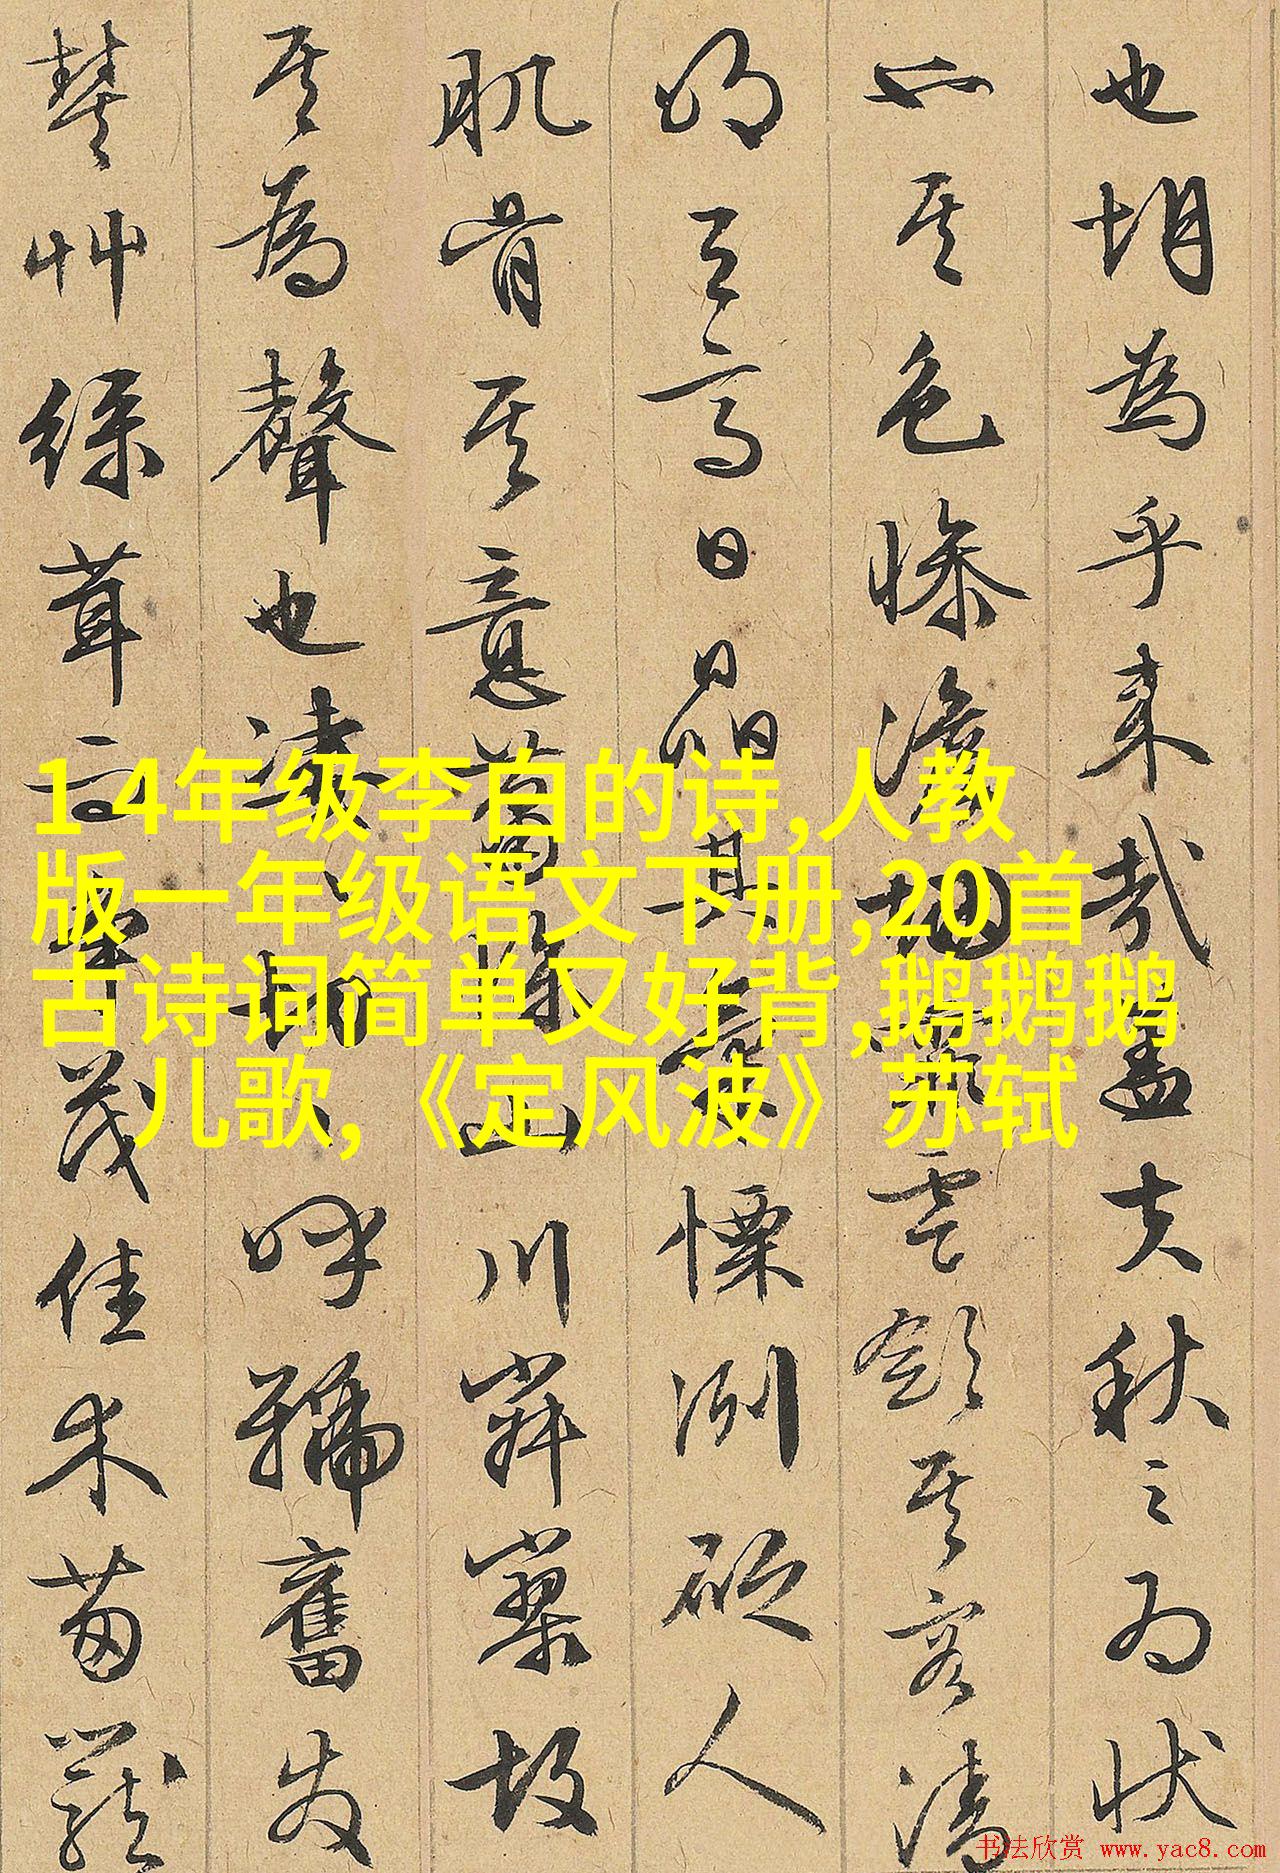 也胡為乎来哉盖夫秋之为状
也其色惨澹烟霏雲歛其容清
明天高日晶其氣慄冽砭人
肌骨其意蕭條山川寂寥故
其為聲也凄〻切〻呼號奮发
豐艸綠茸而争茂佳木葱蘢
1-4年级李白的诗,人教
版一年级语文下册,20首
古诗词简单又好背,鹅鹅鹅
儿歌,《定风波》 苏轼
书法欣赏 www.yac8.com